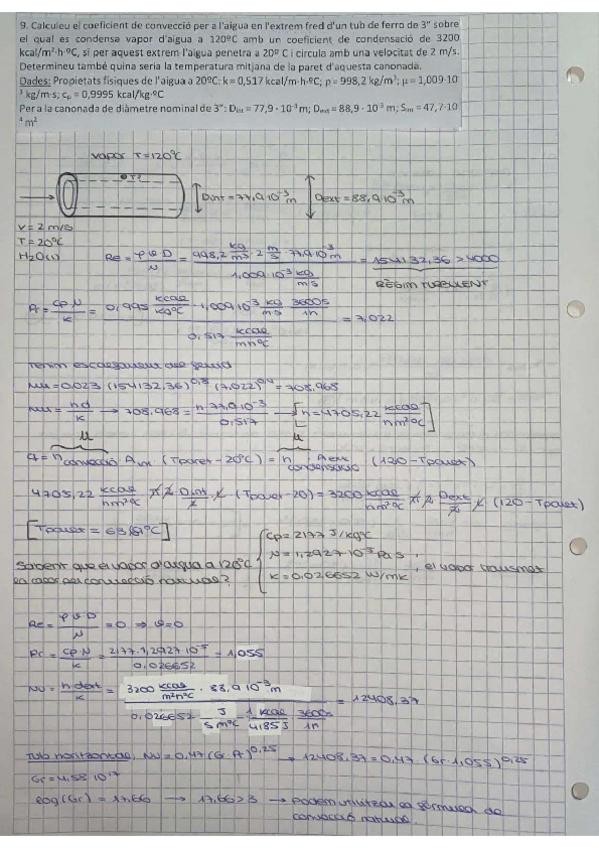 9. Calculeu el coeficient de convecció per a l'aigua en l'extrem fred d'un tub de ferro de 3" sobre
el qual es condensa vapor d'aigua a 120ºC amb un coeficient de condensació de 3200
kcal/m²·h·ºC, si per aquest extrem l'aigua penetra a 20º C i circula amb una velocitat de 2 m/s.
Determineu també quina seria la temperatura mitjana de la paret d'aquesta canonada.
Dades: Propietats físiques de l'aigua a 20ºC: k = 0,517 kcal/m·h·ºC; ρ = 998,2 kg/m³; μ = 1,009·10⁻
³ kg/m·s; cₚ = 0,9995 kcal/kg·ºC
Per a la canonada de diàmetre nominal de 3": Dint = 77,9 · 10⁻³ m; Dext = 88,9 · 10⁻³ m; Sint = 47,7·10⁻
⁴ m²
vapor T=120ºC
Dint = 77,9·10⁻³ m Dext = 88,9·10⁻³ m
v = 2 m/s
T = 20ºC
H₂O(l)
Re = ρ v D / μ = 998,2 kg/m³ · 2 m/s · 77,9·10⁻³ m / 1,009·10⁻³ kg/m·s = 154132,36 > 4000
RÈGIM TURBULENT
Pr = cp μ / k = 0,995 kcal/kgºC · 1,009·10⁻³ kg/m·s · 3600s/1h / 0,517 kcal/mhºC = 7,022
Nu = 0,023 (154132,36)^0,8 (7,022)^0,4 = 708,968
Nu = hd/k → 708,968 = h 77,9·10⁻³ / 0,517 → [h = 4705,22 kcal/hm²ºC]
q = h convecció · Aint (Tparet - 20ºC) = h condensació Aext (120 - Tparet)
4705,22 kcal/hm²ºC · π · 2 · Dint/2 · L · (Tparet - 20) = 3200 kcal/hm²ºC π · 2 · Dext/2 · L (120 - Tparet)
[Tparet = 63,69ºC]
Sabent que el vapor d'aigua a 120ºC { Cp = 2177 J/kgºC
μ = 1,2927·10⁻⁵ Pa·s
k = 0,026652 W/mK
, el vapor transmet
la calor per convecció natural?
Re = ρ v D / μ = 0 → v = 0
Pr = cp μ / k = 2177 · 1,2927·10⁻⁵ / 0,026652 = 1,055
Nu = h dext / k = 3200 kcal/m²hºC · 88,9·10⁻³ m / 0,026652 J/s mºC · 1 kcal/4185J · 3600s/1h = 12408,37
Tub horitzontal, Nu = 0,47 (Gr Pr)^0,25 → 12408,37 = 0,47 · (Gr · 1,055)^0,25
Gr = 4,58·10¹⁷
log(Gr) = 17,66 → 17,66 > 3 → podem utilitzar la fórmula de
convecció natural.